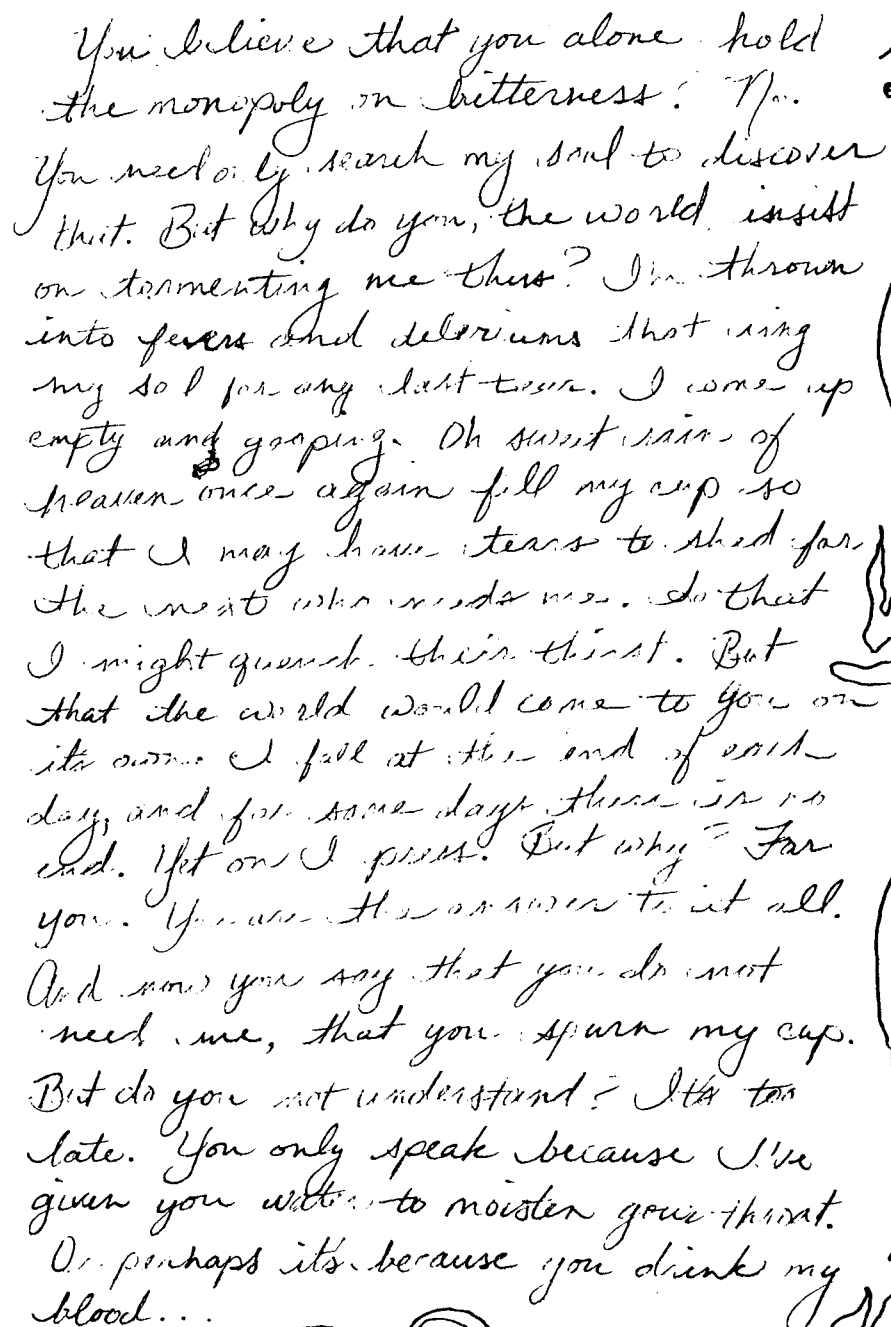 You believe that you alone hold
the monopoly on bitterness? No.
You need only search my soul to discover
that. But why do you, the world, insist
on tormenting me thus? I'm thrown
into fevers and deleriums that wring
my soul for any last tear. I come up
empty and gasping. Oh sweet rain of
heaven once again fill my cup so
that I may have tears to shed for
the next who needs me. So that
I might quench their thirst. But
that the world would come to you on
its own. I fall at the end of each
day, and for some days there is no
end. Yet on I press. But why? For
you. You are the answer to it all.
And now you say that you do not
need me, that you spurn my cup.
But do you not understand? It's too
late. You only speak because I've
given you water to moisten your throat.
Or perhaps it's because you drink my
blood...